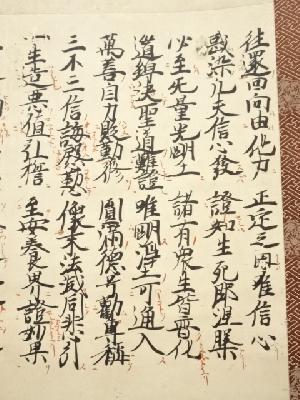 往還回向由他力 正定之因唯信心
惑染凡夫信心發 證知生死即涅槃
必至无量光明土 諸有衆生皆普化
道綽決聖道難證 唯明淨土可通入
萬善自力貶勤修 圓滿德号勸專稱
三不三信誨慇懃 像末法滅同悲引
一生造惡值弘誓 至安養界證妙果